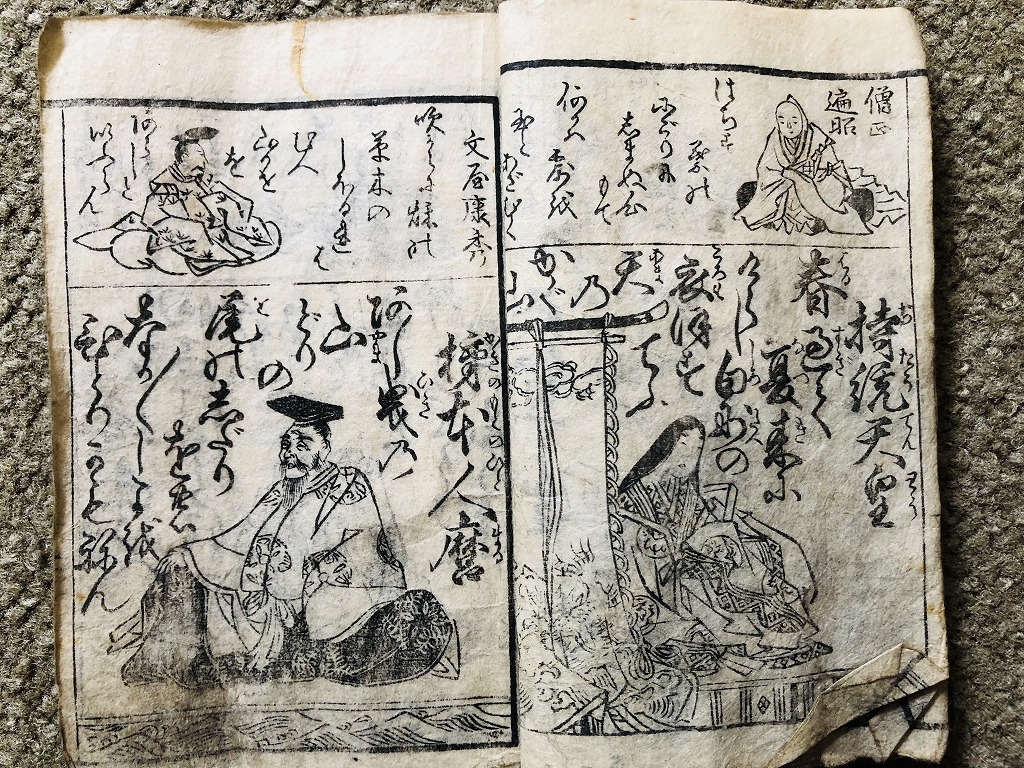 僧正
遍昭
はちす
葉の
にごりに
しまぬ心
もて
何かは
露を
玉と
あざむく
持統天皇
春過て
夏来に
けらし白妙の
衣ほす
てふ
天乃
かぐ山
文屋康秀
吹からに秌の
草木の
しほるれば
むべ
山かぜ
を
あらしと
いふらん
柿本人麿
あし曳乃
山
どりの
尾のしだり
尾の
なが〱し夜を
ひとりかもねん